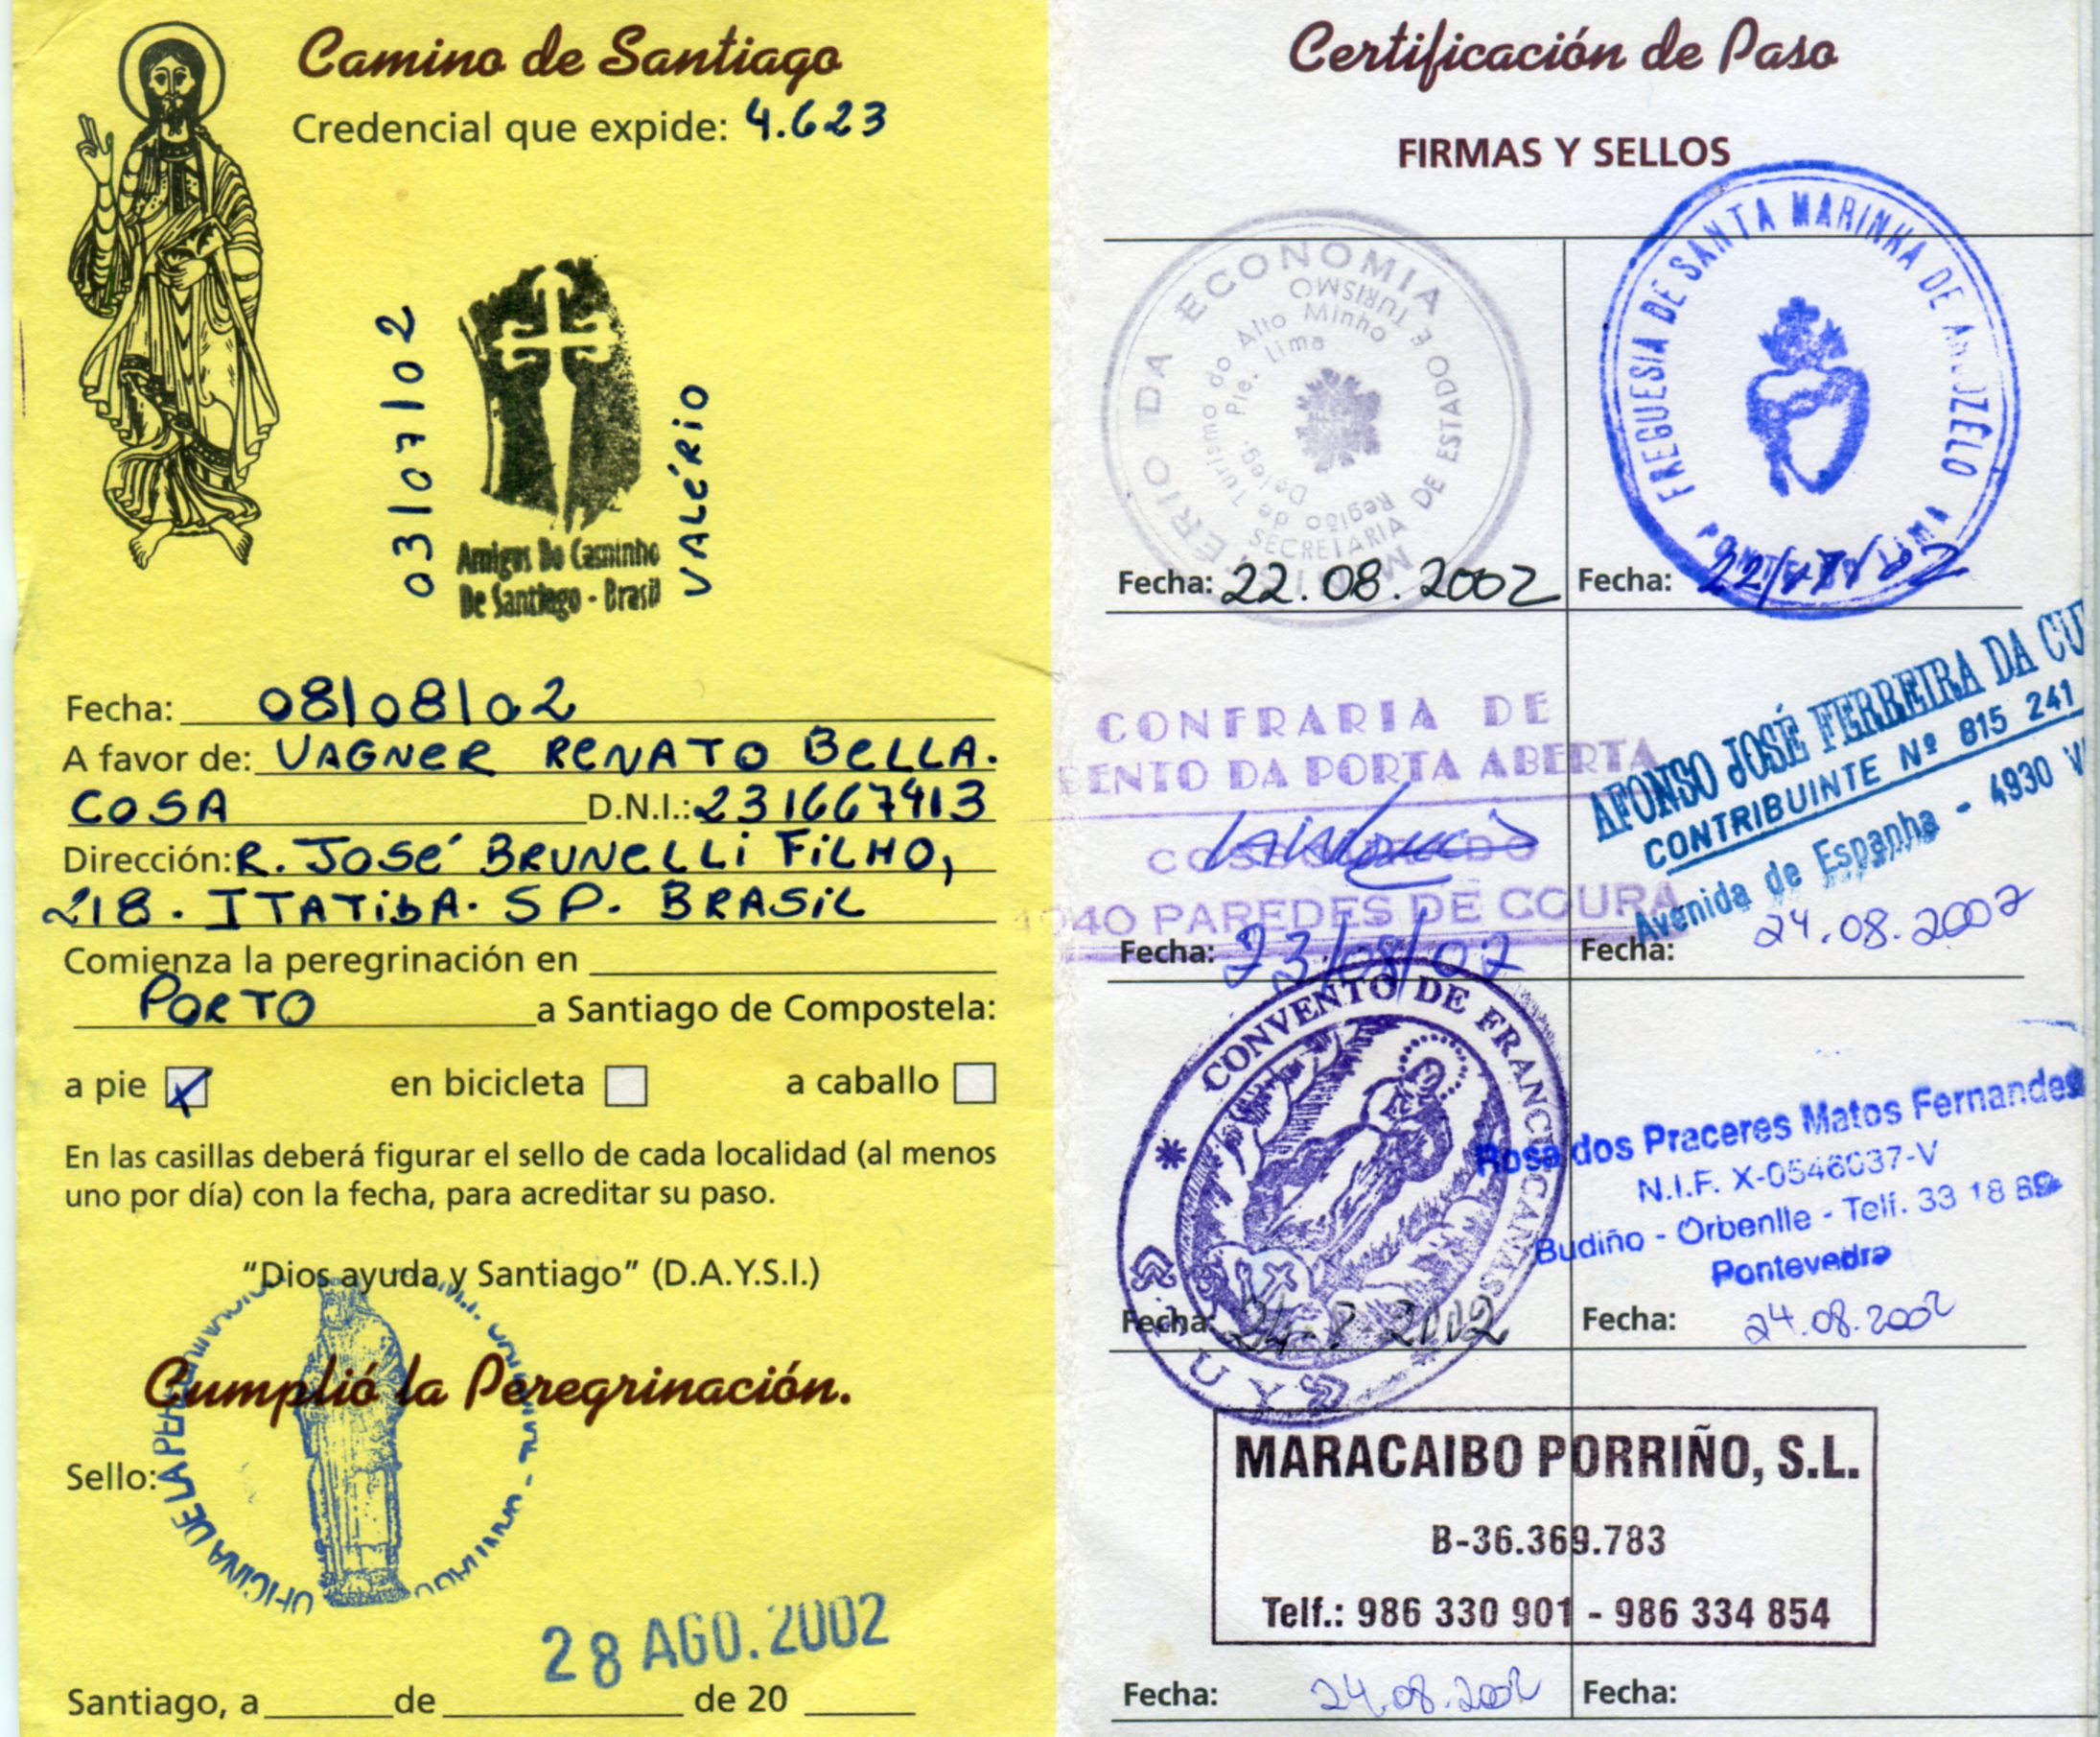 Camino de Santiago
Credencial que expide: 4.623
03/07/02
VALÉRIO
Amigos Do Caminho
De Santiago - Brasil
Fecha: 08/08/02
A favor de: VAGNER RENATO BELLA.
COSA D.N.I.: 231667413
Dirección: R. JOSÉ BRUNELLI FILHO,
218. ITATIBA. SP. BRASIL
Comienza la peregrinación en
PORTO a Santiago de Compostela:
a pie en bicicleta a caballo
En las casillas deberá figurar el sello de cada localidad (al menos
uno por día) con la fecha, para acreditar su paso.
"Dios ayuda y Santiago" (D.A.Y.S.I.)
Cumplió la Peregrinación.
Sello:
OFICINA DE LA
28 AGO. 2002
Santiago, a de de 20
Certificación de Paso
FIRMAS Y SELLOS
DA ECONOMIA
SECRETARIA DE ESTADO E TURISMO
Região de Turismo do Alto Minho
Deleg. Pte. Lima
Fecha: 22.08.2002
FREGUESIA DE SANTA MARINHA DE
LIMA
Fecha:
CONFRARIA DE
BENTO DA PORTA ABERTA
PAREDES DE COURA
Fecha: 23/08/02
AFONSO JOSÉ FERREIRA DA
CONTRIBUINTE Nº 815 241
Avenida de Espanha - 4930
Fecha: 24.08.2002
CONVENTO DE FRANCISCANAS
TUY
Fecha: 24.8.2002
Rosa dos Praceres Matos Fernandes
N.I.F. X-0546037-V
Budiño - Orbenlle - Telf. 33 18 89
Pontevedra
Fecha: 24.08.2002
MARACAIBO PORRIÑO, S.L.
B-36.369.783
Telf.: 986 330 901 - 986 334 854
Fecha: 24.08.2002
Fecha: